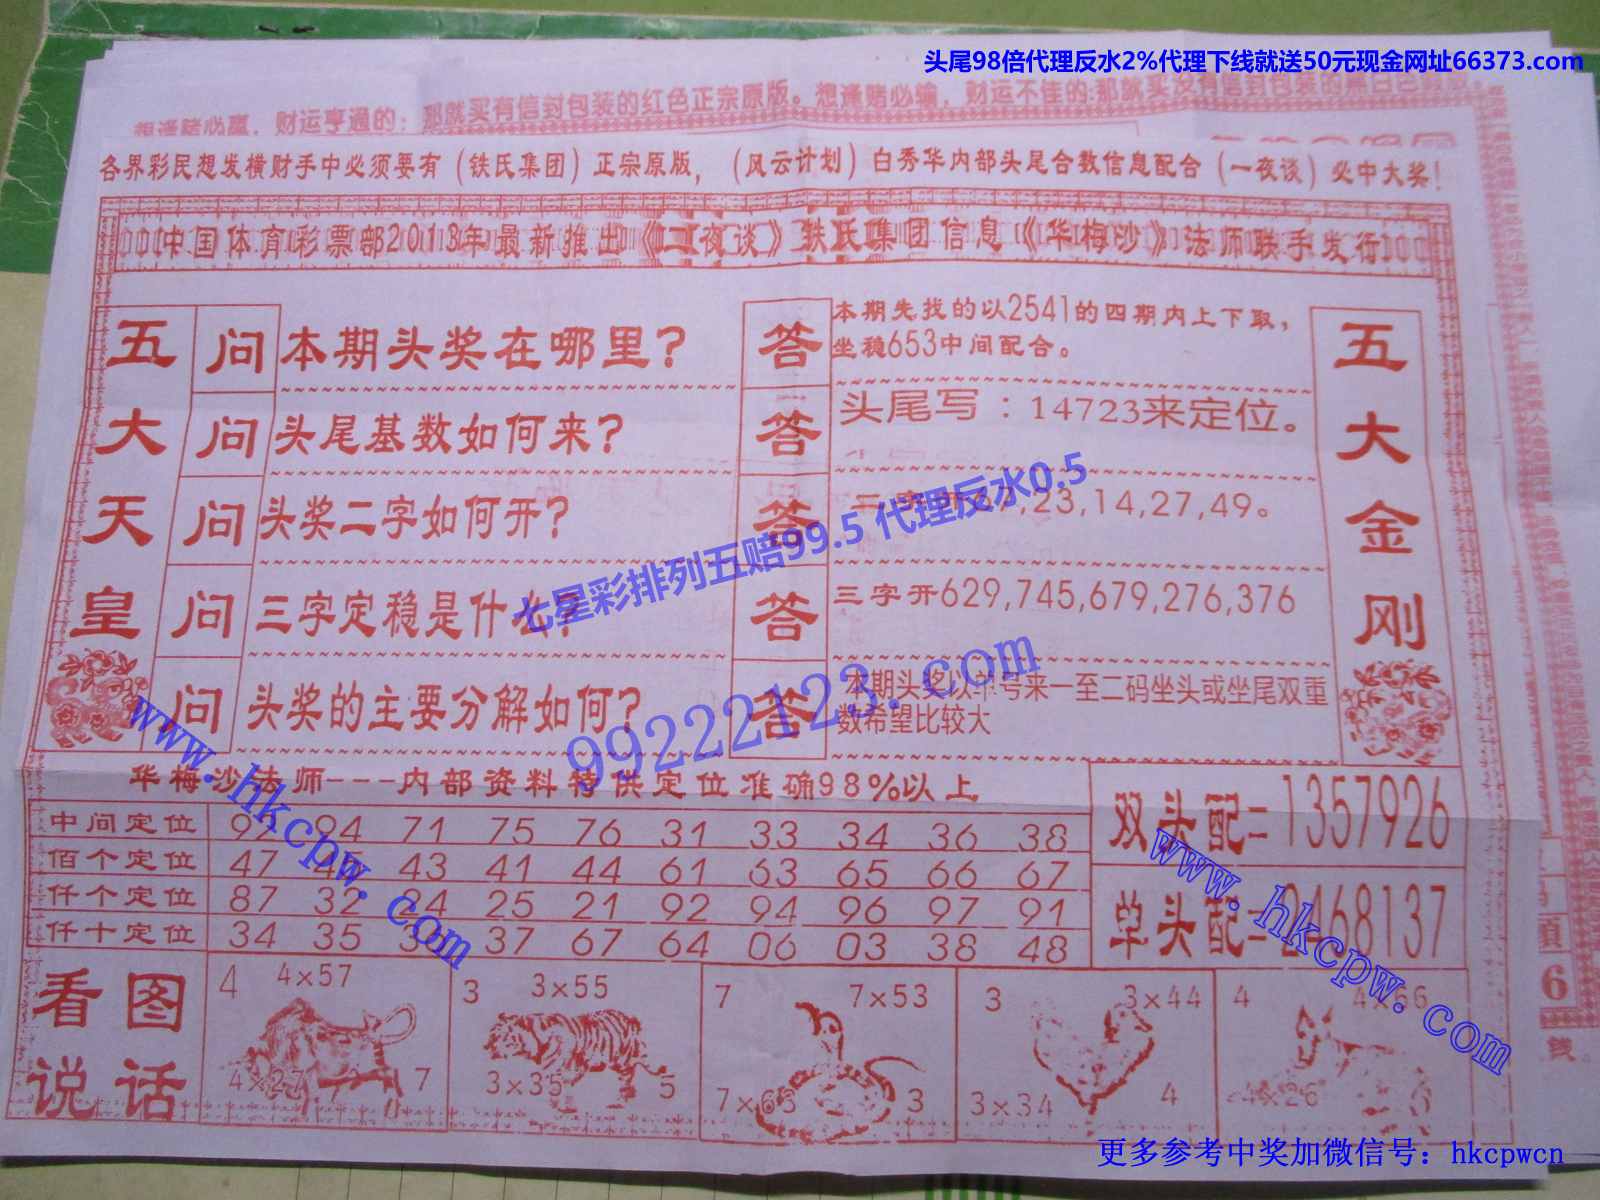 头尾98倍代理反水2%代理下线就送50元现金网址66373.com
想逢赌必赢，财运亨通的：那就买有信封包装的红色正宗原版。想逢赌必输，财运不佳的：那就买没有信封包装的黑白色
各界彩民想发横财手中必须要有（铁氏集团）正宗原版，（风云计划）白秀华内部头尾合数信息配合（一夜谈）必中大奖！
中国体育彩票部2013年最新推出《一夜谈》铁氏集团信息《华梅沙》法师联手发行
五大天皇
问 本期头奖在哪里？
答 本期先找的以2541的四期内上下取，
坐稳653中间配合。
问 头尾基数如何来？
答 头尾写：14723来定位。
问 头奖二字如何开？
答 二字开67,23,14,27,49。
问 三字定稳是什么？
答 三字开629,745,679,276,376
问 头奖的主要分解如何？
答 本期头奖以单号来一至二码坐头或坐尾双重
数希望比较大
五大金刚
七星彩排列五赔99.5 代理反水0.5
99222123.com
www.hkcpw.com
华梅沙法师---内部资料特供定位准确98%以上
中间定位 94 71 75 76 31 33 34 36 38
佰个定位 47 45 43 41 44 61 63 65 66 67
仟个定位 87 32 24 25 21 92 94 96 97 91
仟十定位 34 35 37 67 64 06 03 38 48
双头配=1357926
单头配=2468137
www.hkcpw.com
看图说话
4 4×57
4×27 7
3 3×55
3×35 5
7 7×53
7×63 3
3 3×44
3×34 4
4 4×66
4×26
6
更多参考中奖加微信号：hkcpwcn